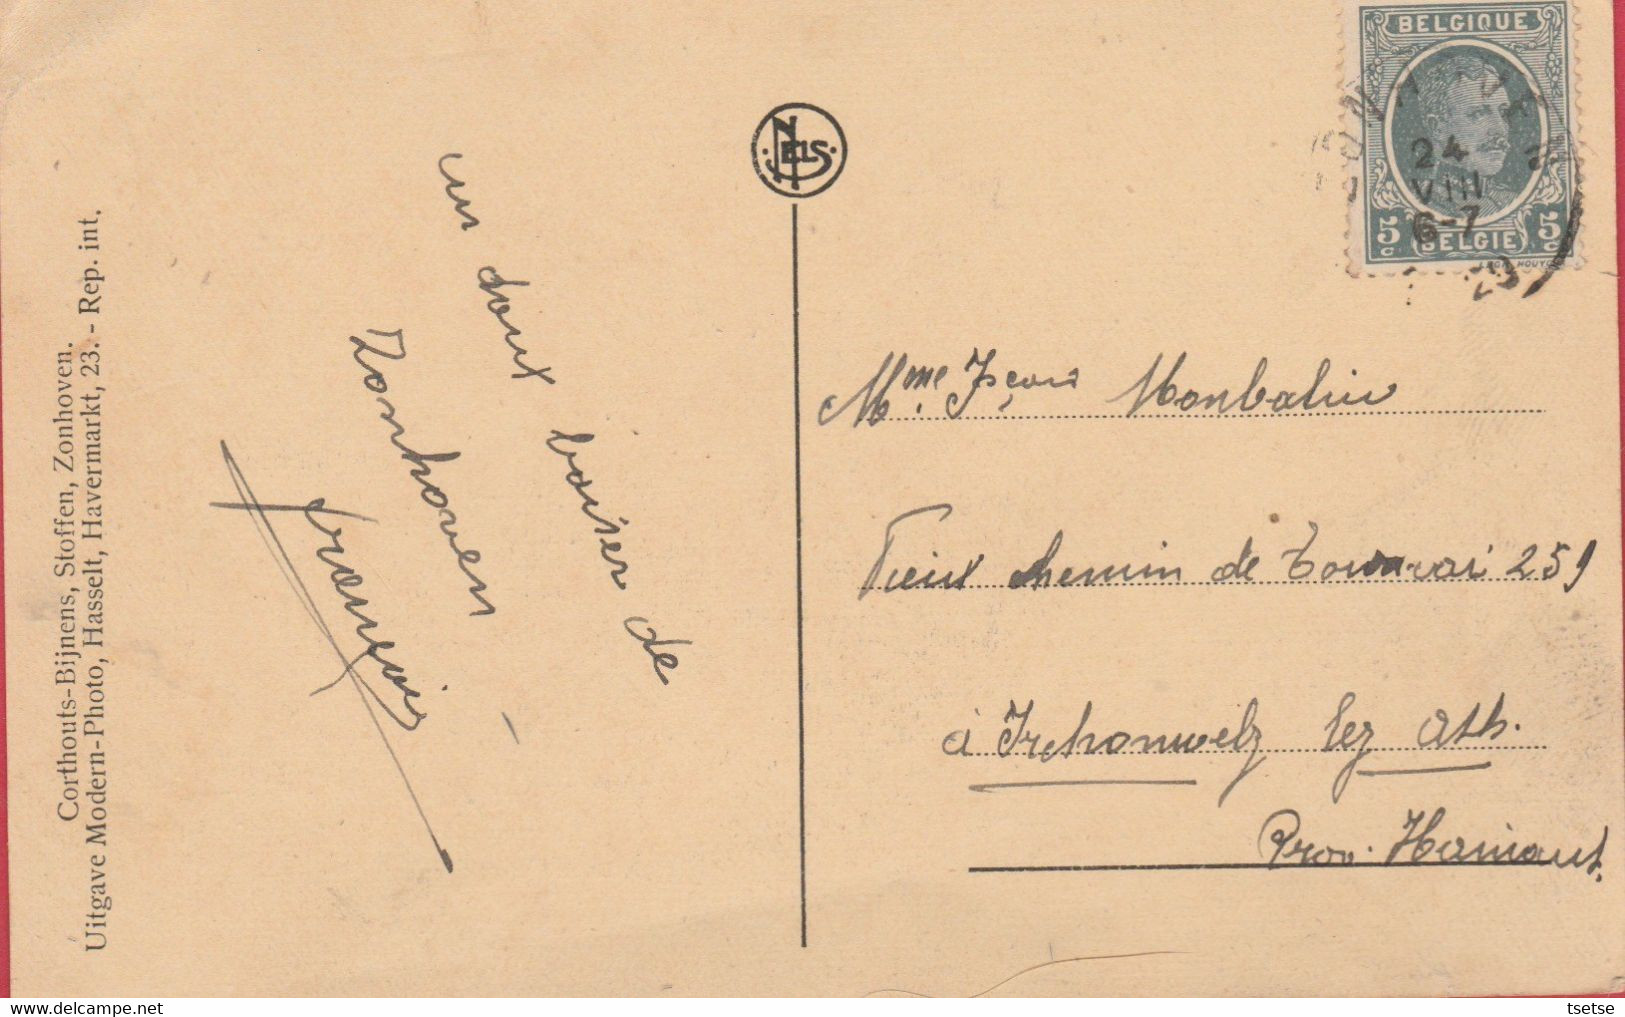 Corthouts-Bijnens, Stoffen, Zonhoven.
Uitgave Modern-Photo, Hasselt, Havermarkt, 23. - Rep. int.
un doux baiser de
Zonhoven
françois
NELS
BELGIQUE
5c BELGIE 5c
24
VIII
6-7
29
Mme. Jçois Monbaliu
Vieux chemin de Tournai 259
à Irchonwelz lez Ath.
Prov. Hainaut.
tsetse